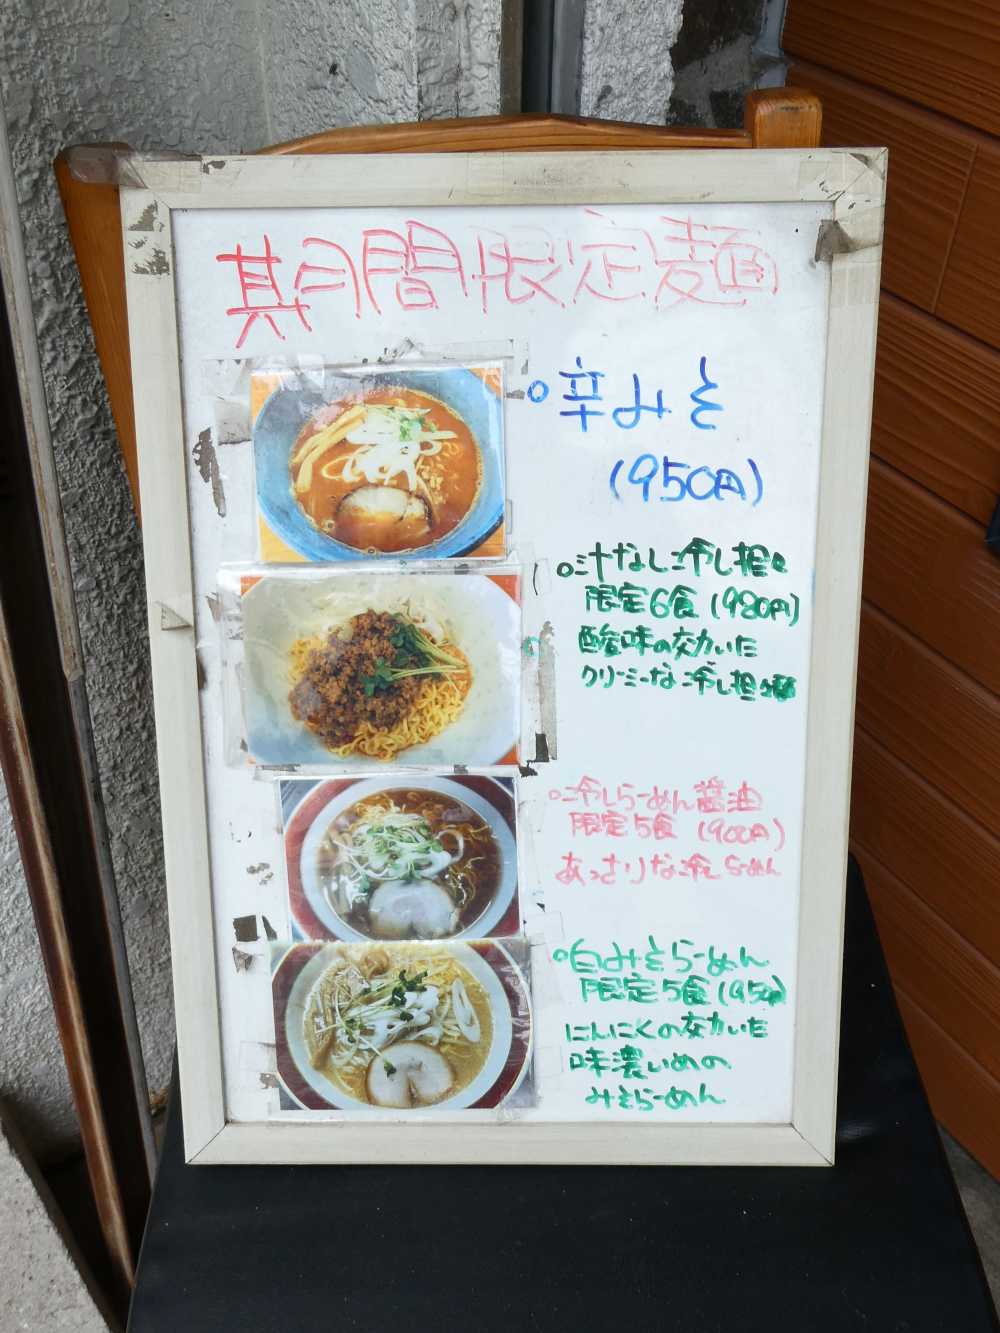 期間限定麺
○辛みそ
(950円)
○汁なし冷し担々
限定6食(980円)
酸味の効いた
クリーミーな冷し担々麺
○冷しらーめん醤油
限定5食(900円)
あっさりな冷しらーめん
○白みそらーめん
限定5食(950円)
にんにくの効いた
味濃いめの
みそらーめん